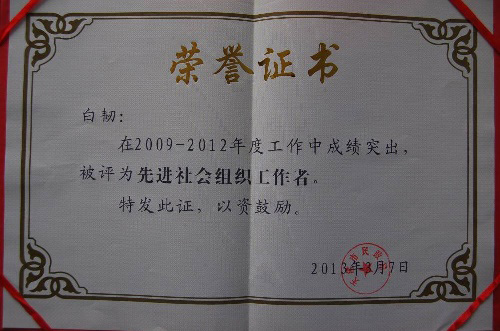 荣誉证书
白韧:
在2009-2012年度工作中成绩突出,
被评为先进社会组织工作者。
特发此证,以资鼓励。
2013年3月7日